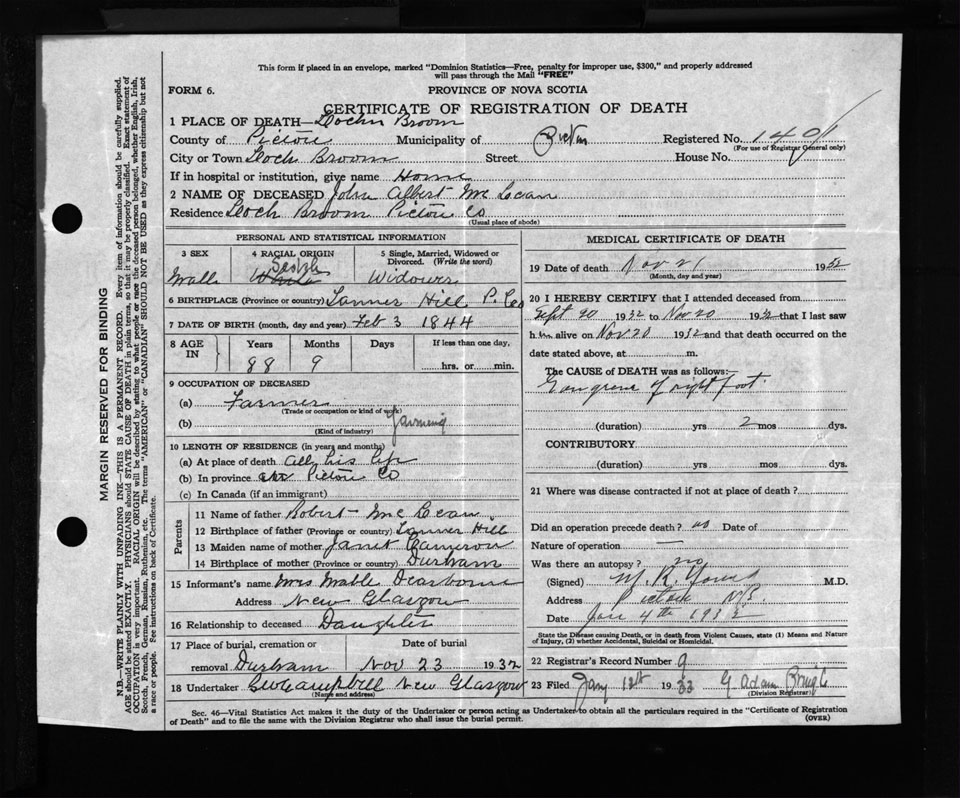 This form if placed in an envelope, marked "Dominion Statistics—Free, penalty for improper use, $300," and properly addressed
will pass through the Mail "FREE"
FORM 6.
PROVINCE OF NOVA SCOTIA
CERTIFICATE OF REGISTRATION OF DEATH
1 PLACE OF DEATH—Loch Broom
County of Pictou Municipality of Pictou Registered No. 1401
(For use of Registrar General only)
City or Town Loch Broom Street House No.
If in hospital or institution, give name Home
2 NAME OF DECEASED John Albert McLean
Residence Loch Broom Pictou Co
(Usual place of abode)
PERSONAL AND STATISTICAL INFORMATION
3 SEX 4 RACIAL ORIGIN 5 Single, Married, Widowed or Divorced. (Write the word)
Male Scotch Widower
6 BIRTHPLACE (Province or country) Tanner Hill P. Co
7 DATE OF BIRTH (month, day and year) Feb 3 1844
8 AGE IN Years Months Days If less than one day,
88 9 hrs. or min.
9 OCCUPATION OF DECEASED
(a) Farmer
(Trade or occupation or kind of work)
(b) farming
(Kind of industry)
10 LENGTH OF RESIDENCE (in years and months)
(a) At place of death all his life
(b) In province Pictou Co
(c) In Canada (if an immigrant)
Parents
11 Name of father Robert McLean
12 Birthplace of father (Province or country) Tanner Hill
13 Maiden name of mother Janet Cameron
14 Birthplace of mother (Province or country) Durham
15 Informant's name Mrs Mable Dearborne
Address New Glasgow
16 Relationship to deceased Daughter
17 Place of burial, cremation or removal Durham Date of burial Nov 23 1932
18 Undertaker Campbell New Glasgow
(Name and address)
MEDICAL CERTIFICATE OF DEATH
19 Date of death Nov 21 1932
(Month, day and year)
20 I HEREBY CERTIFY that I attended deceased from
Sept 20 1932 to Nov 20 1932 that I last saw
him alive on Nov 20 1932 and that death occurred on the
date stated above, at m.
The CAUSE of DEATH was as follows:
Gangrene of right foot.
(duration) yrs 2 mos dys.
CONTRIBUTORY
(duration) yrs mos dys.
21 Where was disease contracted if not at place of death?
Did an operation precede death? no Date of
Nature of operation —
Was there an autopsy? no
(Signed) M. R. Young M.D.
Address Pictou N.S.
Date Jan 4th 1932
State the Disease causing Death, or in death from Violent Causes, state (1) Means and
Nature of Injury, (2) whether Accidental, Suicidal or Homicidal.
22 Registrar's Record Number 9
23 Filed Jany 12th 1933 G Adam
(Division Registrar)
Sec. 46—Vital Statistics Act makes it the duty of the Undertaker or person acting as Undertaker to obtain all the particulars required in the "Certificate of Registration
of Death" and to file the same with the Division Registrar who shall issue the burial permit.
(OVER)
MARGIN RESERVED FOR BINDING
N.B.—WRITE PLAINLY WITH UNFADING INK—THIS IS A PERMANENT RECORD. Every item of information should be carefully supplied.
AGE should be stated EXACTLY. PHYSICIANS should STATE CAUSE OF DEATH in plain terms, so that it may be properly classified. Exact statement of
OCCUPATION is very important. RACIAL ORIGIN will be described by stating to what people or race the deceased person belonged, whether English, Irish,
Scotch, French, German, Russian, Ruthenian, etc. The terms "AMERICAN" or "CANADIAN" SHOULD NOT BE USED as they express citizenship but not
a race or people. See instructions on back of Certificate.